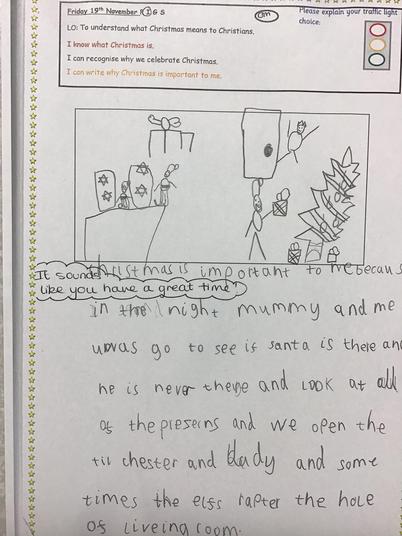 Friday 19th November R I G S
Please explain your traffic light
choice:
LO: To understand what Christmas means to Christians.
I know what Christmas is.
I can recognise why we celebrate Christmas.
I can write why Christmas is important to me.
It sounds
like you have a great time!
Christmas is important to me becaus
in the night mummy and me
go to see if santa is there and
he is never there and Look at all
of the presens and we open the
til chester and dady and some
times the elfs rapter the hole
of liveing room.